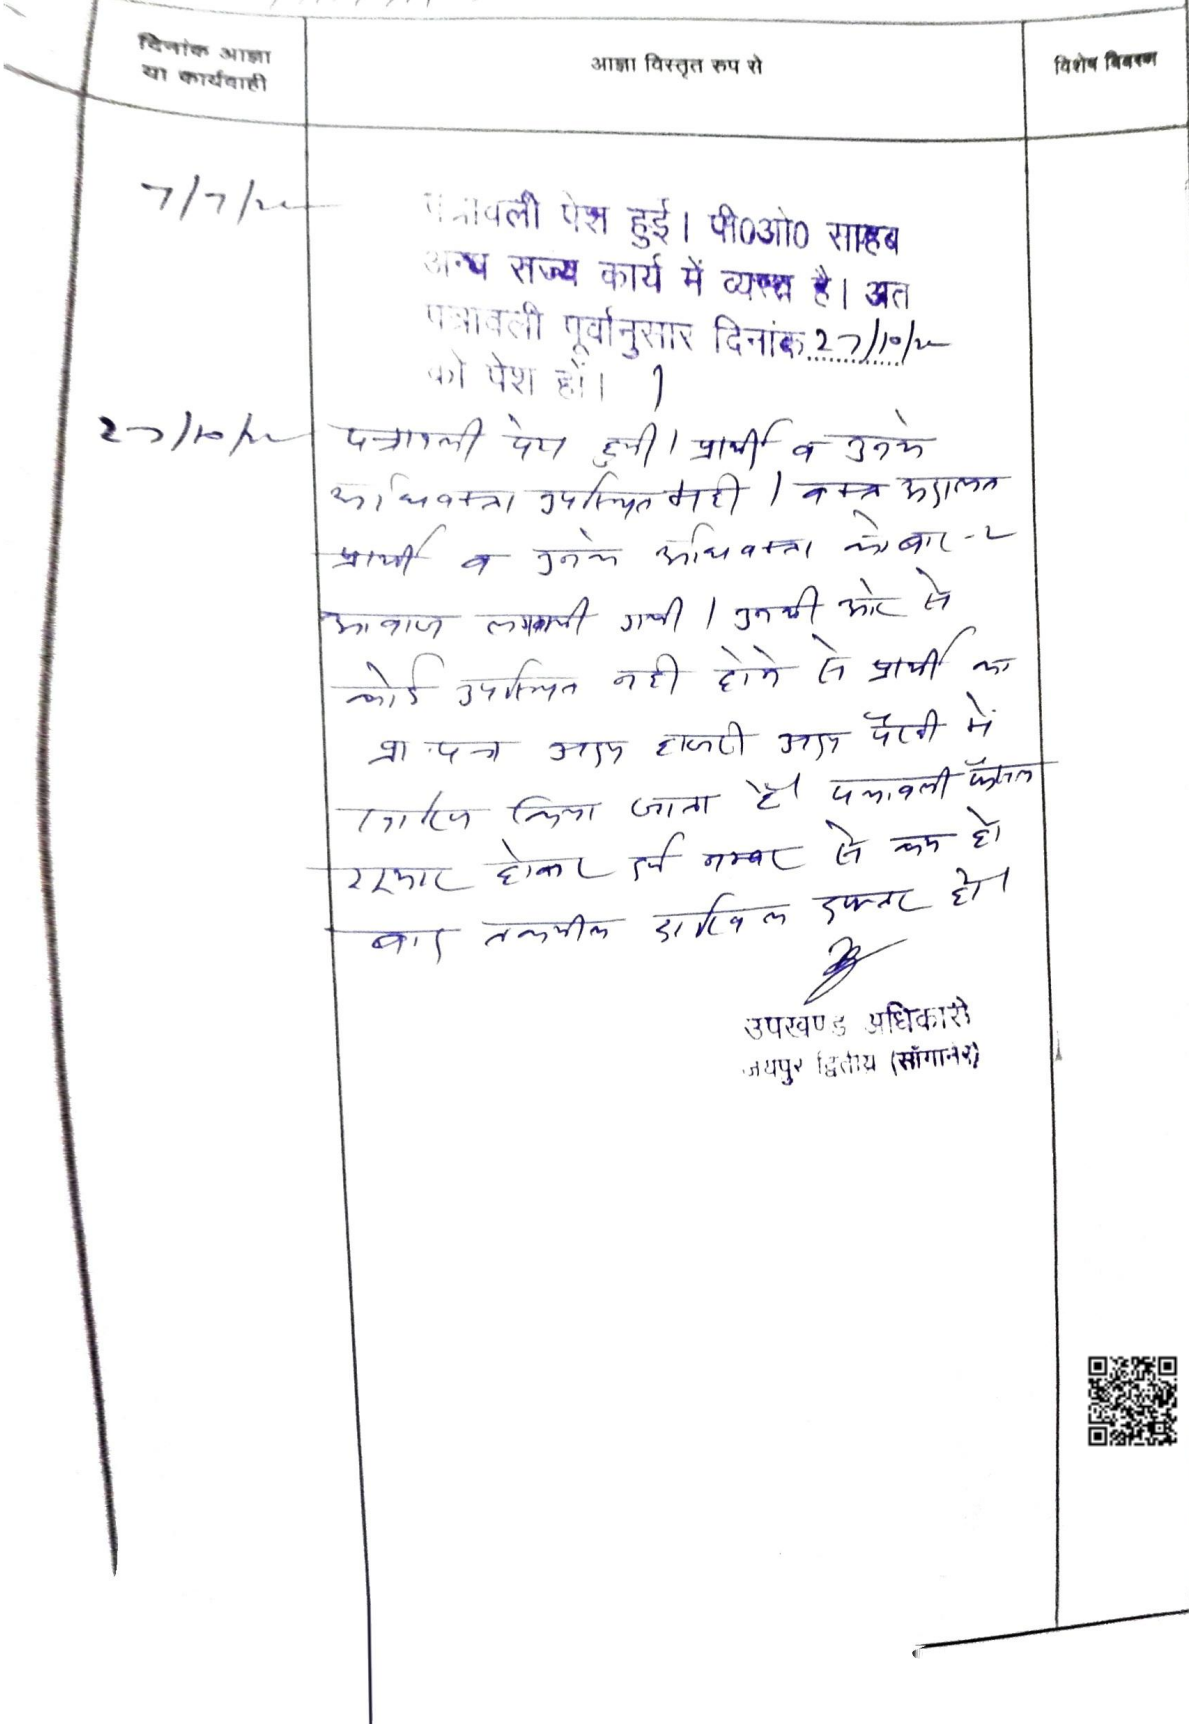 दिनांक आज्ञा
या कार्यवाही
आज्ञा विस्तृत रुप से
विशेष विवरण
7/7/22
पत्रावली पेश हुई। पी0ओ0 साहब
अन्य राज्य कार्य में व्यस्त है। अत
पत्रावली पूर्वानुसार दिनांक 27/10/22
को पेश हों।
27/10/22
पत्रावली पेश हुयी। प्रार्थी व उनके
अधिवक्ता उपस्थित नही। वक्त अदालत
प्रार्थी व उनके अधिवक्ता को बार-2
आवाज लगवायी गयी। उनकी ओर से
कोई उपस्थित नही होने से प्रार्थी का
प्रा पत्र अदम हाजरी अदम पैरवी में
खारिज किया जाता है। पत्रावली फैसल
शुमार होकर दर्ज नम्बर से कम हो
बाद तकमील दाखिल दफ्तर हो।
उपखण्ड अधिकारी
जयपुर द्वितीय (सॉंगानेर)